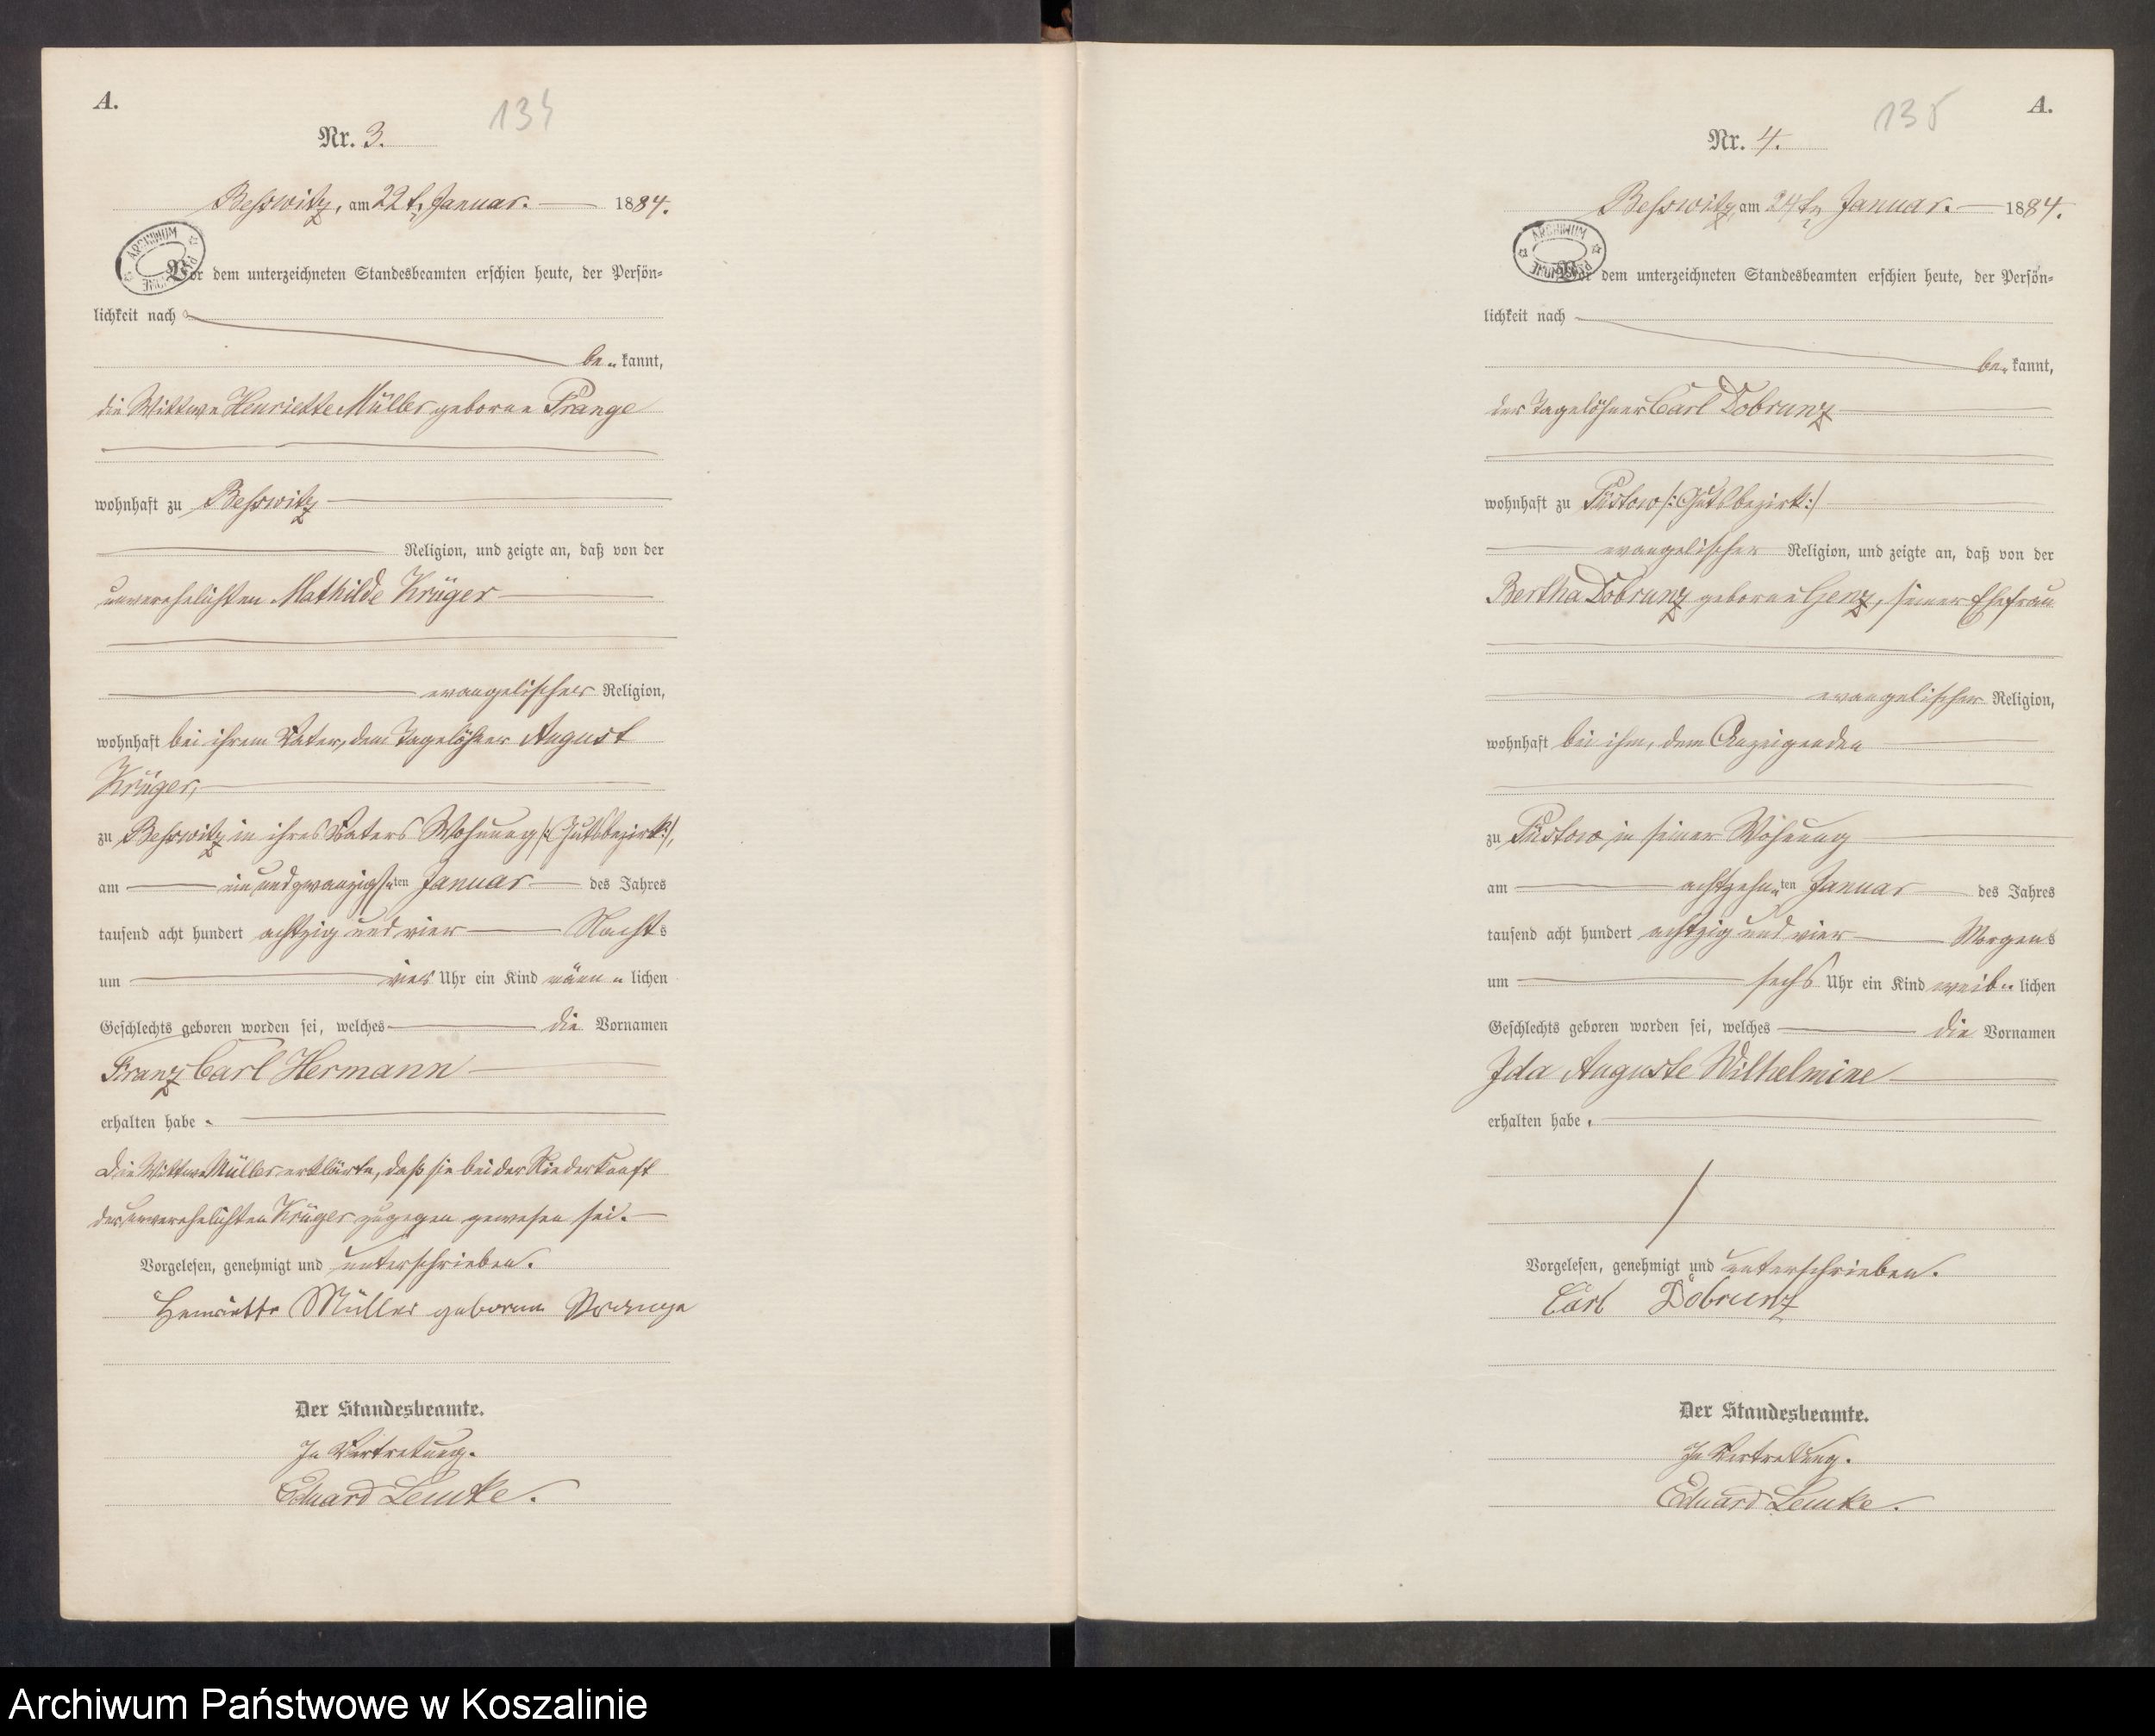 A.
134
Nr. 3.
Beßwitz, am 22t. Januar. 1884.
Vor dem unterzeichneten Standesbeamten erschien heute, der Persön-
lichkeit nach
be-kannt,
die Wittwe Henriette Müller geborne Prange
wohnhaft zu Beßwitz
Religion, und zeigte an, daß von der
unverehelichten Mathilde Krüger
evangelischer Religion,
wohnhaft bei ihrem Vater, dem Tagelöhner August
Krüger,
zu Beßwitz in ihres Vaters Wohnung /:Gutsbezirk:/,
am ein und zwanzigsten Januar des Jahres
tausend acht hundert achtzig und vier Nachts
um vier Uhr ein Kind männlichen
Geschlechts geboren worden sei, welches die Vornamen
Franz Carl Hermann
erhalten habe.
Die Wittwe Müller erklärte, daß sie bei der Niederkunft
der unverehelichten Krüger zugegen gewesen sei.
Vorgelesen, genehmigt und unterschrieben.
Henriette Müller geborne Prange
Der Standesbeamte.
In Vertretung.
Eduard Lemke.
A.
135
Nr. 4.
Beßwitz, am 24tn Januar. 1884.
Vor dem unterzeichneten Standesbeamten erschien heute, der Persön-
lichkeit nach
be-kannt,
der Tagelöhner Carl Dobrunz
wohnhaft zu Püstow /:Gutsbezirk:/
evangelischer Religion, und zeigte an, daß von der
Bertha Dobrunz geborne Genz, seiner Ehefrau
evangelischer Religion,
wohnhaft bei ihm, dem Anzeigenden
zu Püstow in seiner Wohnung
am achtzehnten Januar des Jahres
tausend acht hundert achtzig und vier Morgens
um sechs Uhr ein Kind weiblichen
Geschlechts geboren worden sei, welches die Vornamen
Ida Auguste Wilhelmine
erhalten habe.
Vorgelesen, genehmigt und unterschrieben.
Carl Dobrunz
Der Standesbeamte.
In Vertretung.
Eduard Lemke.
Archiwum Państwowe w Koszalinie